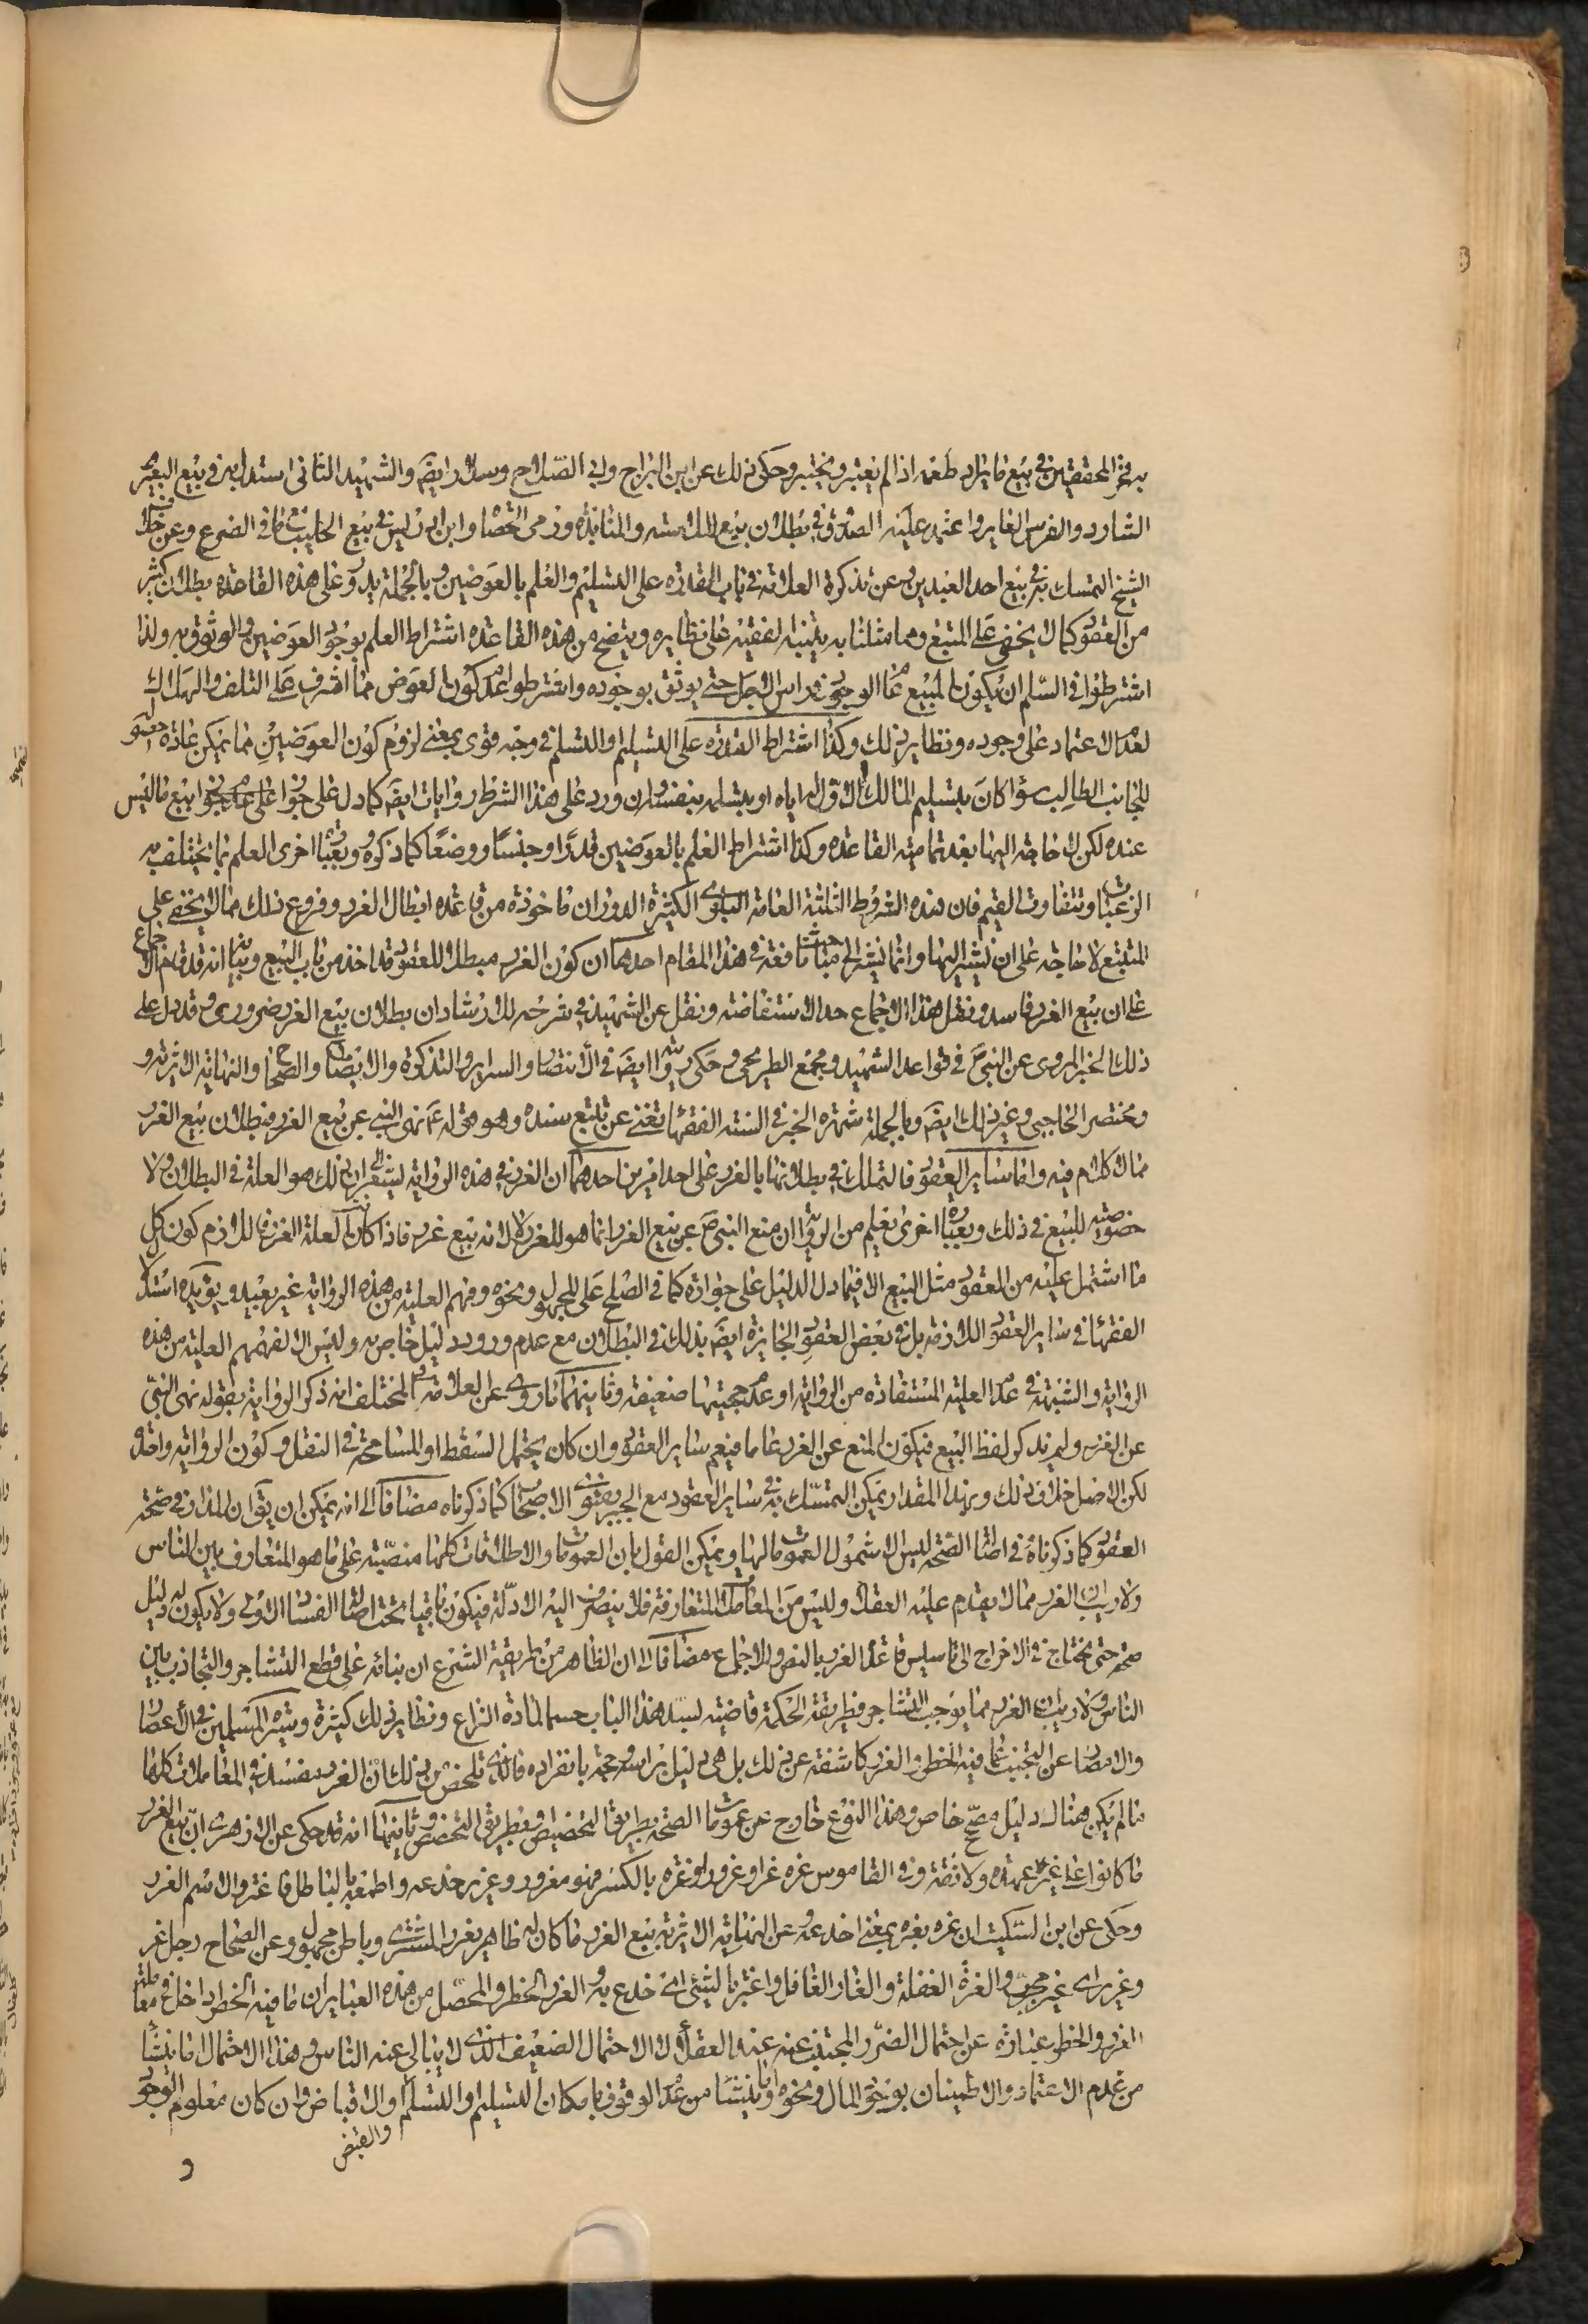 به فخر المحققين في بيع ما يراد طعمه اذا لم يعتبر ويختبر وحكى ذلك عن ابن البراج وابي الصلاح وسلار ايضَ والشهيد الثاني استدل به في بيع البعير
الشارد والفرس الغاير واعتمد عليه الصدوق في بطلان بيع الملامسه والمنابذه ورمى الحصا وابن ادريس في بيع الحليب مع ما في الضرع وعن خلاف
الشيخ التمسك به في بيع احد العبدين وعن تذكرة العلامة في باب القدره على التسليم والعلم بالعوضين وبالجملة يدور على هذه القاعده بطلان كثير
من العقود كما لا يخفى على المتتبع ومما مثلنا به يتنبه الفقيه على نظايره ويتضح من هذه القاعده اشتراط العلم بوجود العوضين والوثوق به ولذا
اشترطوا في السلم ان يكون المبيع عام الوجود في راس الاجل حتى يوثق بوجوده واشترطوا عدم كون العوض مما اشرف على التلف والهلاك
لعدم الاعتماد على وجوده ونظاير ذلك وكذا اشتراط القدره على التسليم والتسلم في وجه قوى بمعنى لزوم كون العوضين مما يمكن عادة حصوله
للجانب الطالب سواء كان بتسليم المالك الاول اياه او بتسلمه بنفسه وان ورد على هذا الشرط روايات ايضَ كما دل على عدم جواز بيع ما ليس
عنده لكن لا حاجة اليها بعد تمامية القاعده وكذا اشتراط العلم بالعوضين قدرًا وجنسًا ووصفًا كما ذكروه وبعبارة اخرى العلم بما يختلف به
الرغبات وتتفاوت القيم فان هذه الشروط الثلثة العامة البلوى الكثيرة الدوران ماخوذة من قاعدة ابطال الغرر وفروع ذلك مما لا يخفى على
المتتبع لا حاجة على ان نشير اليها وانما نشير الى مباحث نافعة في هذا المقام احدهما ان كون الغرر مبطلا للعقود قد اخذ من باب البيع وبيانه انه قد قام الاجماع
على ان بيع الغرر فاسد ونقل هذا الاجماع حد الاستفاضة ونقل عن الشهيد في شرحه للارشاد ان بطلان بيع الغرر ضروري وقد دل على
ذلك الخبر المروى عن النبيّ في قواعد الشهيد ومجمع الطريحى وحكى روايته ايضَ في الانتصار والسراير والتذكرة والايضاح والصحاح والنهاية الاثيرية و
ومختصر الحاجبي وغير ذلك ايضَ وبالجملة شهرة الخبر في السنة الفقهاء تغني عن تتبع سنده وهو قوله عَ نهى النبي عن بيع الغرر فبطلان بيع الغرر
مما لا كلام فيه واما ساير العقود فالتمسك في بطلانها بالغرر على احد امرين احدهما ان الغرر في هذه الرواية ليشعر الى ان ذلك هو العلة في البطلان ولا
خصوصية للبيع في ذلك وبعبارة اخرى نعلم من الرواية ان منع النبيّ عن بيع الغرر انما هو للغرر لا لانه بيع غرر فاذا كان العلة الغرر فاللازم كون كل
ما اشتمل عليه من العقود مثل البيع الا فيما دل الدليل على جوازه كما في الصلح على المجهول ونحوه وفهم العلية من هذه الرواية غير بعيد ويؤيده استدلال
الفقهاء في ساير العقود اللازمة بل في بعض العقود الجايزة ايضَ بذلك في البطلان مع عدم ورود دليل خاص به وليس الا لفهمهم العلية من هذه
الرواية والشبهة في عدم العلية المستفادة من الرواية او عدم حجيتها ضعيفة وثانيهما ما روى عن العلامة في المختلف انه ذكر الرواية بقوله نهى النبيّ
عن الغرر ولم يذكر لفظ البيع فيكون المنع عن الغرر عاما فيعم ساير العقود وان كان يحتمل السقط او المسامحة في النقل وكون الرواية واحدة
لكن الاصل خلاف ذلك وبهذا المقدار يمكن التمسّك به في ساير العقود مع الجبر بفتوى الاصحاب كما ذكرناه مضافا الى انه يمكن ان يقَ ان المدار في صحة
العقود كما ذكرناه في اصالة الصحة ليس الا شمول العمومات لها ويمكن القول بان العمومات والاطلاقات كلها منصبّة على ما هو المتعارف بين الناس
ولا ريب ان الغرر مما لا يقدم عليه العقلاء وليس من المعاملات المتعارفة فلا ينصرف اليه الادلّة فيكون باقيا تحت اصالة الفساد الاولى ولا يكون له دليل
صحة حتى يحتاج في الاخراج الى تاسيس قاعدة الغرر بالنص والاجماع مضافا الى ان الظاهر من طريقة الشرع ان بنائه على قطع التشاجر والتجاذب بين
الناس ولا ريب ان الغرر مما يوجب التشاجر فطريقة الحكمة قاضية لسد هذا الباب حسما لمادة النزاع ونظاير ذلك كثيرة وسيرة المسلمين في الاعصار
والامصار عن التجنب عما فيه الخطر والغرر كاشفة عن ذلك بل هى دليل براسه وحجة بانفراده فالذى تلخص من ذلك ان الغرر مفسد في المعاملات كلها
ما لم يكن هناك دليل مصحّح خاص وهذا النوع خارج عن عمومات الصحة بطريق التخصيص وبطريق التخصص وثانيها انه قد حكى عن الازهرى انّ بيع الغرر
ما كانوا على غير عهدة ولا ثقة وفي القاموس غره غرا وغرورا وغرة بالكسر فهو مغرور وغرير خدعه واطمعه بالباطل فاغتر والاسم الغرر
وحكى عن ابن السكيت ان غره يغره بمعنى اخدعه وعن النهاية الاثيرية بيع الغرر ما كان له ظاهر يغرر المشترى وباطن مجهول وعن الصحاح رجل غر
وغرير اى غير مجرب والغرة الغفلة والغار الغافل واغتر بالشئ اى خدع به والغرر الخطر والمحصّل من هذه العباير ان ما فيه الخطر داخل في معاملة
الغرر والخطر عبارة عن احتمال الضرر المجتنب عنه عند العقلاء لا الاحتمال الضعيف الذى لا يبالى عنه الناس وهذا الاحتمال اما ينشأ
من عدم الاعتماد والاطمينان بوجود المال ونحوه واما ينشأ من عدم الوقوف بامكان التسليم والتسلم والاقباض وان كان معلوم الوجود
والقبض
و